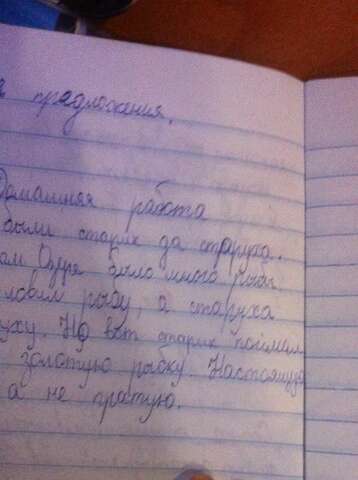 я предложения.
Домашняя работа
были старик да старуха.
ом Озере было много рыбы.
ловил рыбу, а старуха
уху. Но вот старик поймал
золотую рыбку. Настоящую
а не простую.